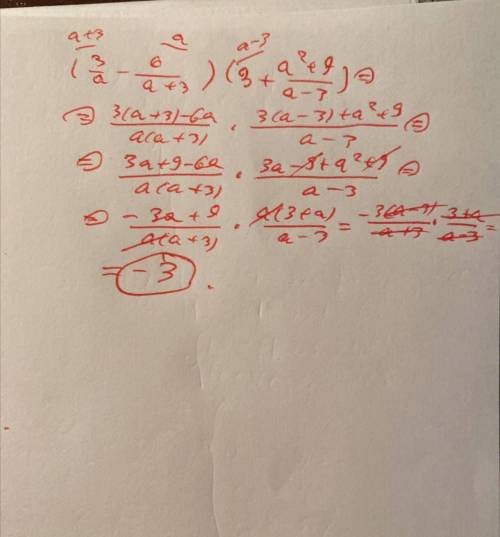 a+3 a a-3
(3/a - 6/(a+3)) (3 + (a²+9)/(a-3)) =
= (3(a+3)-6a)/(a(a+3)) · (3(a-3)+a²+9)/(a-3) =
= (3a+9-6a)/(a(a+3)) · (3a-9+a²+9)/(a-3) =
= (-3a+9)/(a(a+3)) · (a(3+a))/(a-3) = (-3(a-3))/(a+3) · (3+a)/(a-3) =
= -3.